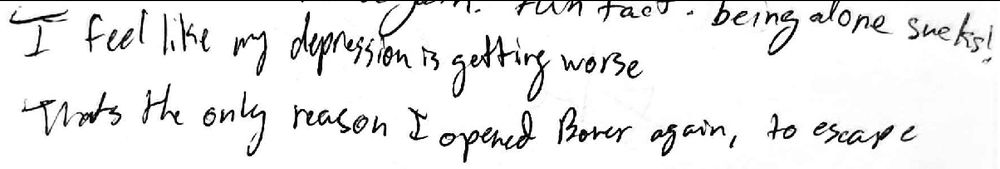 again. fun fact. being alone sucks!
I feel like my depression is getting worse
Thats the only reason I opened Borer again, to escape